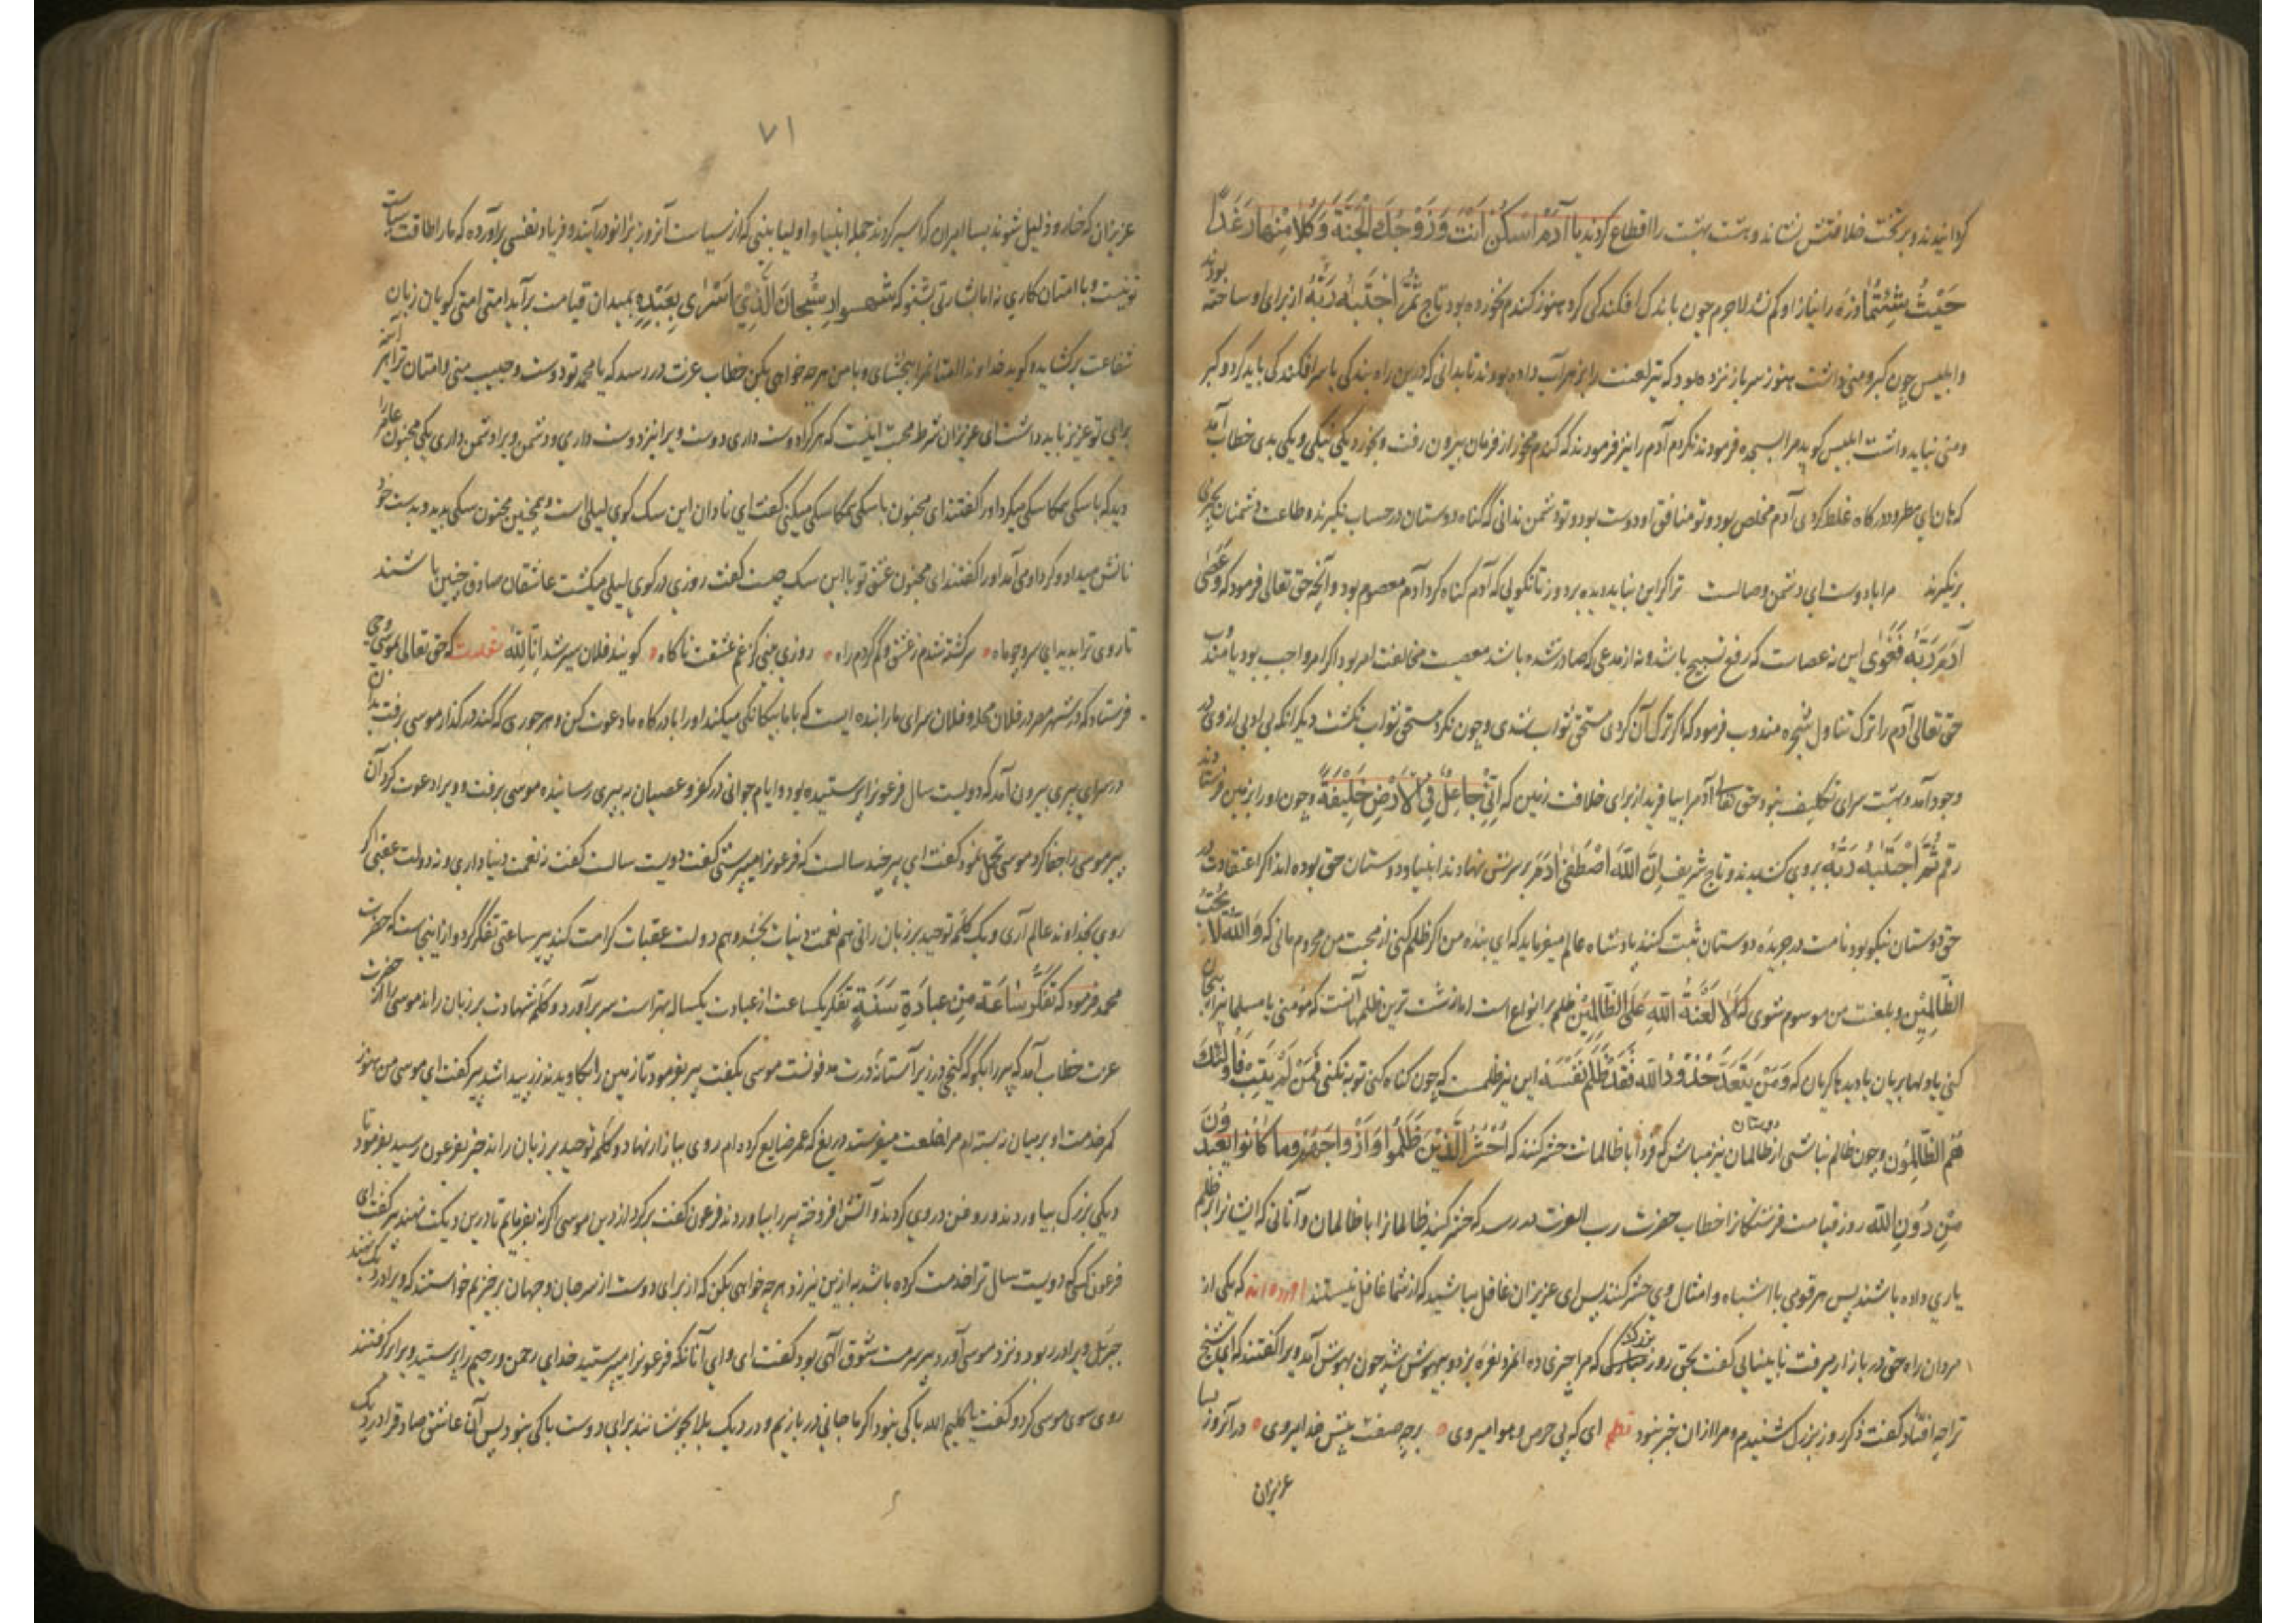 کردانیدند و بر تخت خلافتش نشاندند و هشت بهشت را اقطاع کردند یا آدَمُ اسْکُنْ اَنْتَ وَزَوْجُکَ الْجَنَّةَ وَکُلَا مِنْهَا رَغَدًا
حَیْثُ شِئْتُمَا و ذره را نیاز او کم نشد لاجرم چون بانک افکندکی کرد هنوز کندم نخورده بود تاج ثُمَّ اجْتَبٰهُ رَبُّهُ از برای او ساخته بودند
و ابلیس چون کبر و منی داشت هنوز سر باز نزده بود که تیر لعنت را بزهر آب داده بودند تا بدانی که درین راه بندکی با سرافکندکی باید کرد و کبر
و منی نباید داشت ابلیس کوید مرا بسجده فرمودند نکردم آدم را نیز فرمودند که کندم مخور از فرمان بیرون رفت و بخورد یکی نیکی و یکی بدی خطاب آمد
که هان ای مطرود درکاه غلط کردی آدم مخلص بود و تو منافق او دوست بود و تو دشمن ندانی که کناه دوستان در حساب نکیرند و طاعت دشمنان بچیزی
برنکیرند مرا با دوست ای دشمن وصالست ترا کر این نباید دیده بردوز تا نکویی که آدم کناه کرد آدم معصوم بود و آنچه حق تعالی فرمود که وَعَصٰی
آدَمُ رَبَّهُ فَغَوٰی این نه عصیانست که رفع تسبیح باشد و نه از مدعی که صادر شده باشد معصیت مخالفت امر بود اکر امر واجب بود یا مندوب
حق تعالی آدم را ترک تناول شجره مندوب فرمود که اکر ترک آن کردی مستحق ثواب شدی و چون نکرد مستحق ثواب نکشت دیکر انکه بی ادبی از وی در
وجود آمد و بهشت سرای تکلیف نبود حق تعالی آدم را بیافرید از برای خلافت زمین که اِنِّی جَاعِلٌ فِی الْاَرْضِ خَلِیْفَةً و چون او را بزمین فرستادند
رقم ثُمَّ اجْتَبٰهُ رَبُّهُ بروی کشیدند و تاج شریف اِنَّ اللّٰهَ اصْطَفٰی آدَمَ بر سرش نهادند انبیا و دوستان حق بوده اند اکر اعتقادت در
حق دوستان نیکو بود نامت در جریده دوستان ثبت کنند پادشاه عالم میفرماید که ای بنده من اکر ظلم کنی از محبت من محروم مانی که وَاللّٰهُ لَا یُحِبُّ
الظَّالِمِیْنَ و بلعنت من موسوم شوی که اَلَا لَعْنَةُ اللّٰهِ عَلَی الظَّالِمِیْنَ ظلم بر انواع است اما زشت ترین ظلمها آنست که مؤمنی یا مسلمانی را برنجانی
کنی یا دلها بریان یا دیدها کریان که وَمَنْ یَتَعَدَّ حُدُوْدَ اللّٰهِ فَقَدْ ظَلَمَ نَفْسَهُ این نیز ظلمست که چون کناه کنی توبه نکنی فَمَنْ لَمْ یَتُبْ فَاُولٰئِکَ
هُمُ الظّالِمُوْنَ و چون ظالم نباشی از دوستان ظالمان نیز مباش که فردا با ظالمانت حشر کنند که اُحْشُرُوا الَّذِیْنَ ظَلَمُوْا وَاَزْوَاجَهُمْ وَمَا کَانُوْا یَعْبُدُوْنَ
مِنْ دُوْنِ اللّٰهِ روز قیامت فرشتکانرا خطاب حضرت رب العزت در رسد که حشر کنید ظالمانرا با ظالمان و آنانی که ایشانرا بر ظلم
یاری داده باشند پس هر قومی با اشباه و امثال وی حشر کنند پس ای عزیزان غافل مباشید که از شما غافل نیستند آورده اند که یکی از
مردان راه حق در بازار میرفت نابینایی کفت بحق روز بزرک که مرا چیزی ده آن مرد نعره بزد و بیهوش شد چون بهوش آمد ویرا کفتند که ای شیخ
ترا چه افتاد کفت ذکر روز بزرک شنیدم و مرا از آن خبر نبود نظم ای که پی حرص و هوا میروی برچه صفت پیش خدا میروی در آنروز بسا
عزیزان
۷۱
عزیزان که خار و ذلیل شوند بسا امیران که اسیر کردند جمله انبیا و اولیا بینی که از سیاست آنروز بزانو درآیند و فریاد نفسی برآورده که ما را طاقت سیاست
تو نیست و با امتان کاری نه اما بشارتی بشنو که شهسوار سُبْحَانَ الَّذِیْ اَسْرٰی بِعَبْدِهِ بمیدان قیامت برآید امتی امتی کویان زبان
شفاعت برکشاید و کوید خداوندا امتانمرا ببخشای و با من هرچه خواهی بکن خطاب عزت در رسد که یا محمد تو دوست و حبیب منی و امتان ترا از بهر
برای تو عزیز باید داشت ای عزیزان شرط محبت اینست که هرکرا دوست داری دوست ویرا نیز دوست داری و دشمن ویرا دشمن داری یکی مجنون عامر را
دید که با سکی همکاسکی میکرد او را کفتند ای مجنون با سکی همکاسکی میکنی کفت ای نادان این سک کوی لیلی است و همچنین مجنون سکی بدید و بدست خود
نانش میداد و کرد او می آمد او را کفتند ای مجنون عشق تو با این سک چیست کفت روزی در کوی لیلی میکشت عاشقان صادق چنین باشند
تا روی ترا بدیدم ای سرو چو ماه سرکشته شدم ز عشق و کم کردم راه روزی بینی کز غم عشقت ناکاه کویند فلان سیر شد انا لله نقلست که حق تعالی بموسی وحی
فرستاد که در شهر مصر در فلان محله و فلان سرای ما را بنده ایست که با ما بیکانکی میکند او را بدرکاه ما دعوت کن و هر جوری که کند درکذار موسی برفت بدان
در سرای پیری بیرون آمد که دویست سال فرعونرا پرستیده بود و ایام جوانی در کفر و عصیان به پیری رسانیده موسی برفت و ویرا دعوت کرد آن
پیر موسی را جفا کرد موسی تحمل نمود کفت ای پیر چند سالست که فرعونرا میپرستی کفت دویست سالست کفت نه نعمت دنیا داری و نه دولت عقبی اکر
روی بخداوند عالم آری و یک کلمه توحید بر زبان رانی هم نعمت دنیات بخشد و هم دولت عقبات کرامت کند پیر ساعتی تفکر کرد و از اینجاست که حضرت
محمد فرمود که تَفَکُّرُ سَاعَةٍ مِنْ عِبَادَةِ سَنَةٍ تفکر یکساعت از عبادت یکسال بهتر است سر برآورد و کلمه شهادت بر زبان راند موسی را از حضرت
عزت خطاب آمد که پیر را بکو که کنجی در زیر آستانه درت مدفونست موسی بکفت پیر بفرمود تا زمین را بکاویدند زر پیدا شد پیر کفت ای موسی من هنوز
کمر خدمت او بر میان نبسته ام مرا خلعت میفرستد دریغ که عمر ضایع کرده ام روی ببازار نهاد و کلمه توحید بر زبان راند خبر بفرعون رسید بفرمود تا
دیکی بزرک بیاوردند و روغن در وی کردند و آتش افروخته پیر را بیاوردند فرعون کفت برکرد از دین موسی اکر نه بفرمایم تا درین دیکت نهند پیر کفت ای
فرعون کسی که دویست سال ترا خدمت کرده باشد به ازین نیرزد هرچه خواهی بکن که از برای دوست از سر جان و جهان برخیزم خواستند که ویرا در دیک نهند
جبرئیل ویرا در ربود و نزد موسی آورد پیر سرمست شوق الهی بود کفت ای وای آنانکه فرعونرا میپرستید خدای رحمن و رحیم را پرستید ویرا برکفتند
روی سوی موسی کرد و کفت یا کلیم الله باکی نبود اکر ما جانی در بازیم و در دیک بلا بجوشانند برای دوست باکی نبود پس آن عاشق صادقرا در دیک